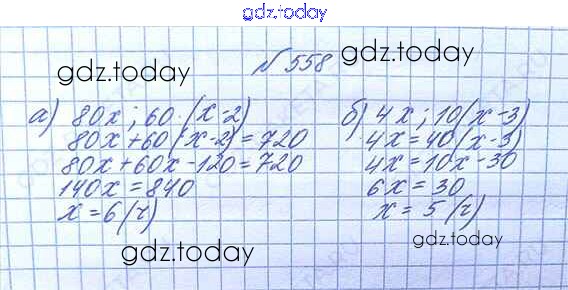 gdz.today
gdz.today
№ 558
gdz.today
а) 80x; 60 (x-2)
80x+60 (x-2) = 720
80x+60x-120=720
140x=840
x=6 (ч)
б) 4x; 10(x-3)
4x=40(x-3)
4x=10x-30
6x=30
x= 5 (ч)
gdz.today
gdz.today